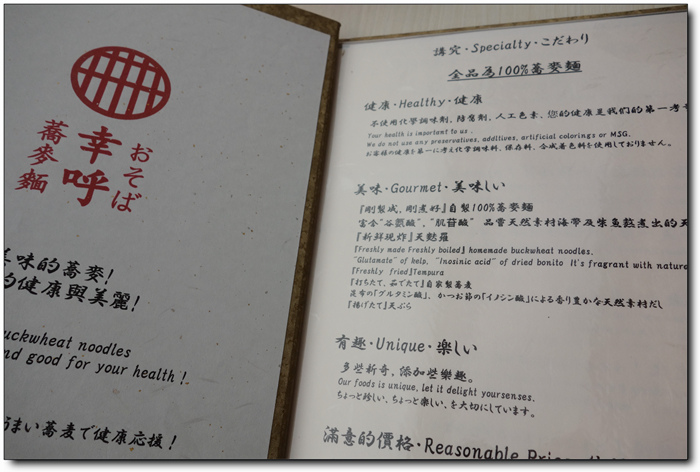 おそば
幸呼
蕎麥麵
美味的蕎麥!
的健康與美麗!
buckwheat noodles
and good for your health!
うまい蕎麦で健康応援!
講究・Specialty・こだわり
全品為100%蕎麥麵
健康・Healthy・健康
不使用化學調味劑,防腐劑,人工色素,您的健康是我們的第一考
Your health is important to us .
We do not use any preservatives, additives, artificial colorings or MSG.
お客様の健康を第一に考え化学調味料、保存料、合成着色料を使用しておりません。
美味・Gourmet・美味しい
『剛製成,剛煮好』自製100%蕎麥麵
富含"谷氨酸","肌苷酸" 品嘗天然素材海帶及柴魚熬煮出的天
『新鮮現炸』天麩羅
『Freshly made Freshly boiled』 homemade buckwheat noodles.
"Glutamate" of kelp, "Inosinic acid" of dried bonito It's fragrant with nature
『Freshly fried』Tempura
『打ちたて、茹でたて』自家製蕎麦
昆布の「グルタミン酸」、かつお節の「イノシン酸」による香り豊かな天然素材だし
『揚げたて』天ぷら
有趣・Unique・楽しい
多些新奇,添加些樂趣。
Our foods is unique, let it delight yoursenses.
ちょっと珍しい、ちょっと楽しい、を大切にしています。
滿意的價格・Reasonable Price